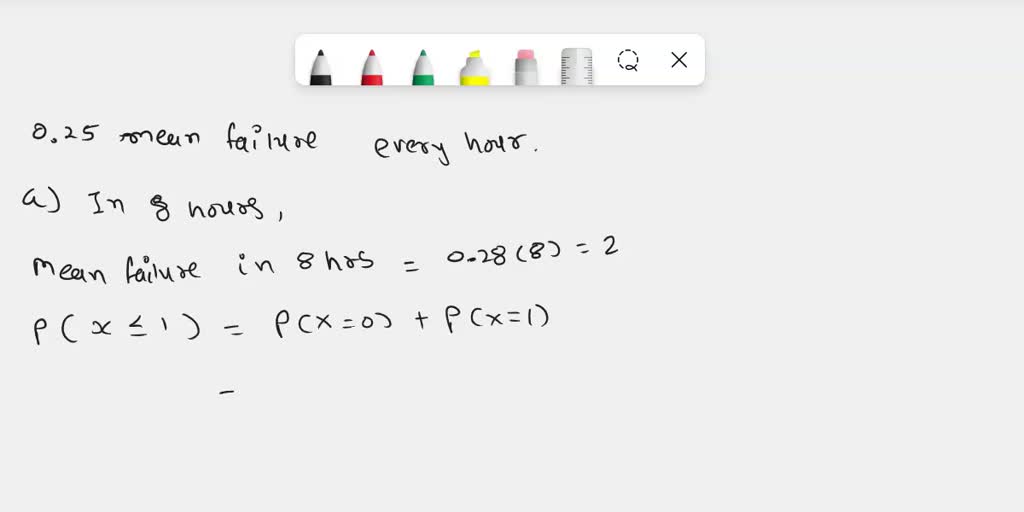 0.25 mean failure every hour.
a) In 8 hours,
mean failure in 8 hrs = 0.28(8) = 2
P(x ≤ 1) = P(x=0) + P(x=1)
=